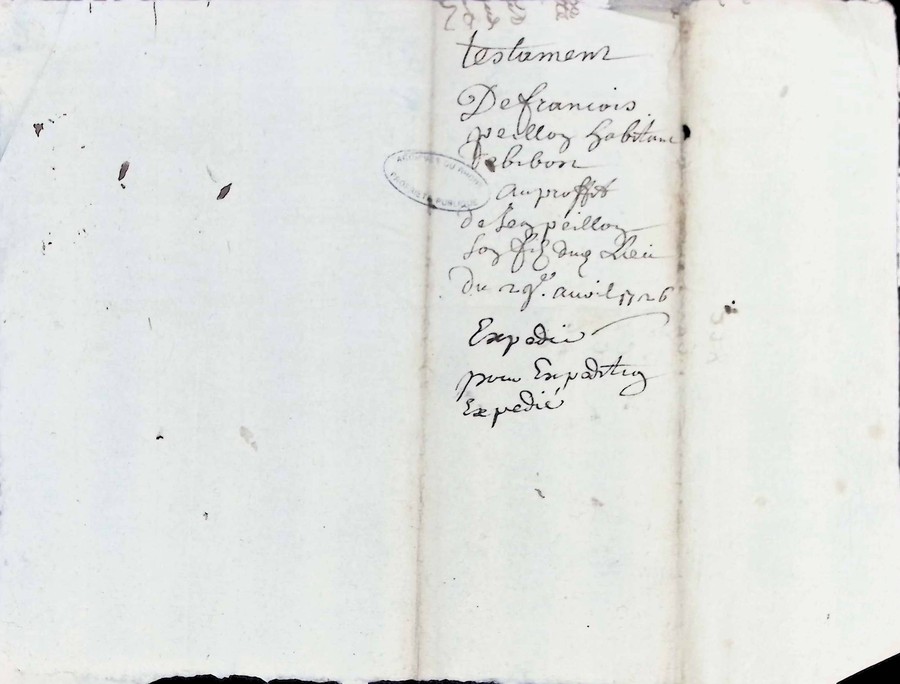 testament
De francois
peillon habitant
de bibost
au proffit
de Leon peillon
son filz dud Lieu
du 29e. avril 1726
Expedié
pour Expedition
Expedié
ARCHIVES DU RHONE